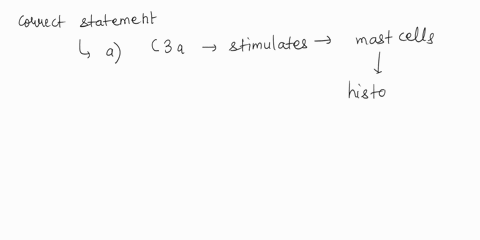 correct statement
↳ a) C3a → stimulates → mast cells
↓
histo